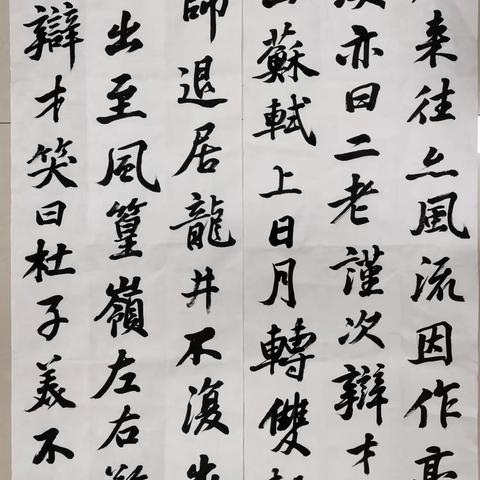 来往亦風流因作
亦曰二老謹次辯才
蘇軾上日月轉雙
師退居龍井不復出
出至風篁嶺左右
辯才笑曰杜子美不